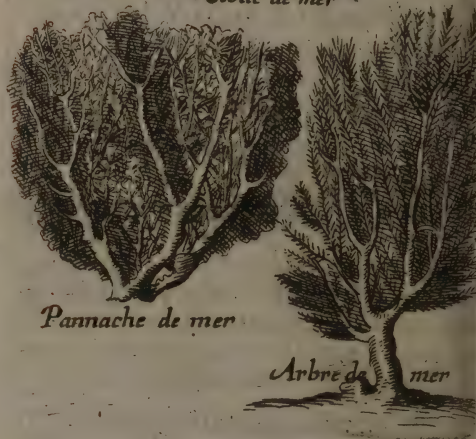 de mer
Pannache de mer
Arbre de mer